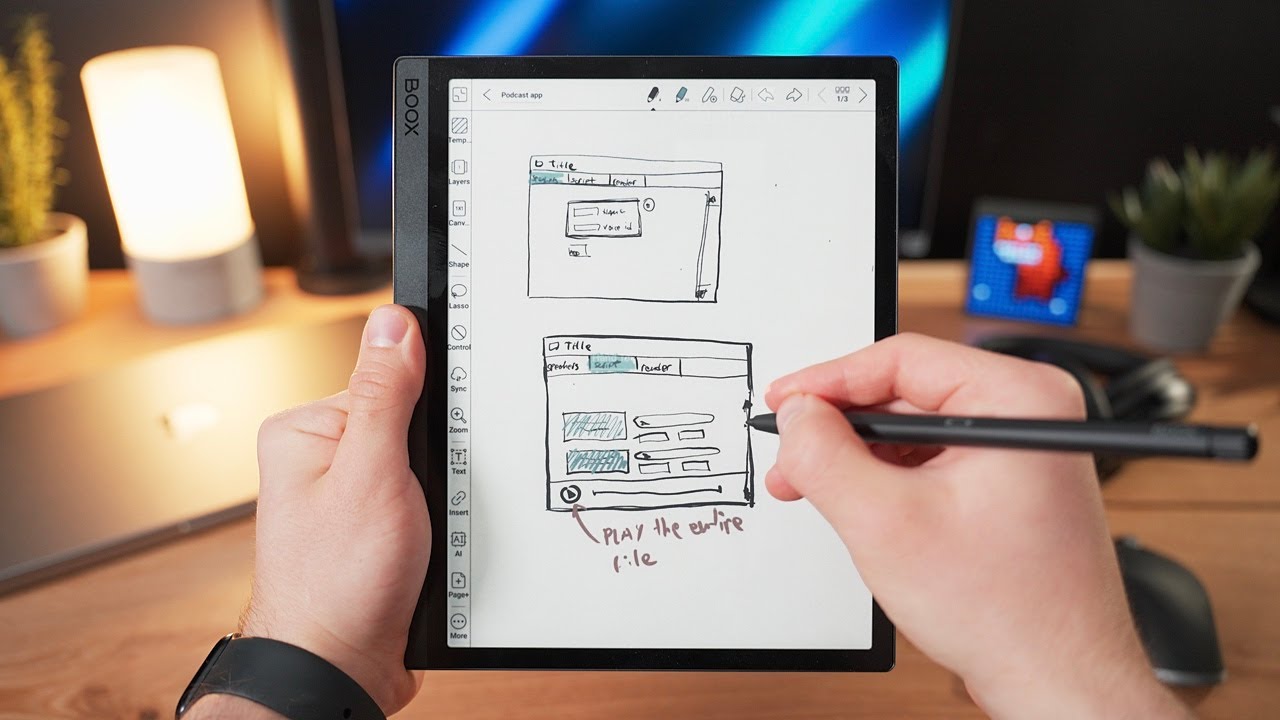 BOOX
Podcast app
1/3
Temp...
Layers
Canv...
Shape
Lasso
Control
Sync
Zoom
Text
Insert
AI
Page+
More
Title
script render
name
voice id
Title
speakers script render
PLAY the entire
file